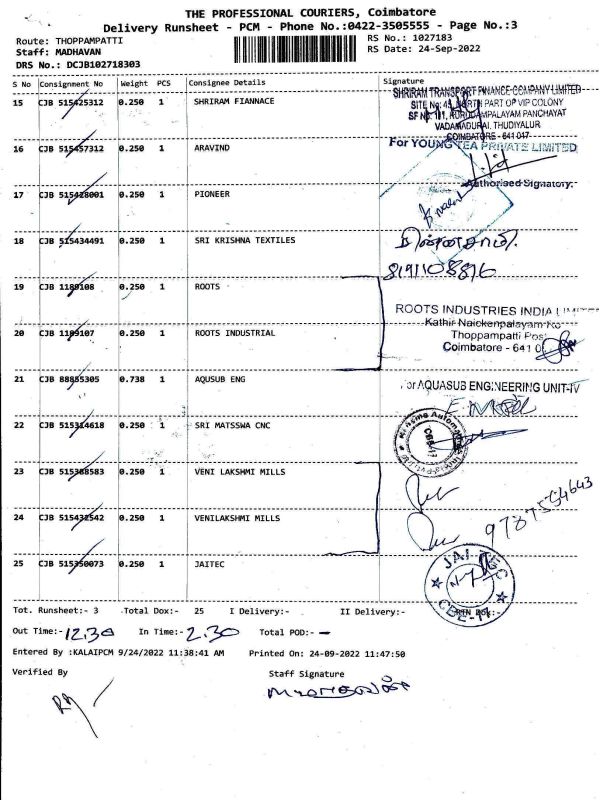 THE PROFESSIONAL COURIERS, Coimbatore
Delivery Runsheet - PCM - Phone No.:0422-3505555 - Page No.:3
Route: THOPPAMPATTI
RS No.: 1027183
Staff: MADHAVAN
RS Date: 24-Sep-2022
DRS No.: DCJB102718303
S No Consignment No Weight PCS Consignee Details Signature
15 CJB 515425312 0.250 1 SHRIRAM FIANNACE
SHRIRAM TRANSPORT FINANCE COMPANY LIMITED
SITE No: 45, NORTH PART OF VIP COLONY
SF No. 101, KURUDAMPALAYAM PANCHAYAT
VADAMADURAI, THUDIYALUR
COIMBATORE - 641 017
16 CJB 515457312 0.250 1 ARAVIND
For YOUNG TEA PRIVATE LIMITED
Authorised Signatory.
17 CJB 515428001 0.250 1 PIONEER
18 CJB 515434491 0.250 1 SRI KRISHNA TEXTILES
சின்னசாமி.
8191108816
19 CJB 1189108 0.250 1 ROOTS
ROOTS INDUSTRIES INDIA
Kathir Naickenpalayam
20 CJB 1189107 0.250 1 ROOTS INDUSTRIAL
Thoppampatti Post
Coimbatore - 641 0
21 CJB 88885305 0.738 1 AQUSUB ENG
For AQUASUB ENGINEERING UNIT-IV
22 CJB 515314618 0.250 1 SRI MATSSWA CNC
CBE-17
23 CJB 515388583 0.250 1 VENI LAKSHMI MILLS
24 CJB 515432542 0.250 1 VENILAKSHMI MILLS
9787554643
25 CJB 515350073 0.250 1 JAITEC
JAI TEC
CBE-17
Tot. Runsheet:- 3 Total Dox:- 25 I Delivery:- II Delivery:-
Out Time:- 12.30 In Time:- 2.30 Total POD:- -
Entered By :KALAIPCM 9/24/2022 11:38:41 AM Printed On: 24-09-2022 11:47:50
Verified By
Staff Signature